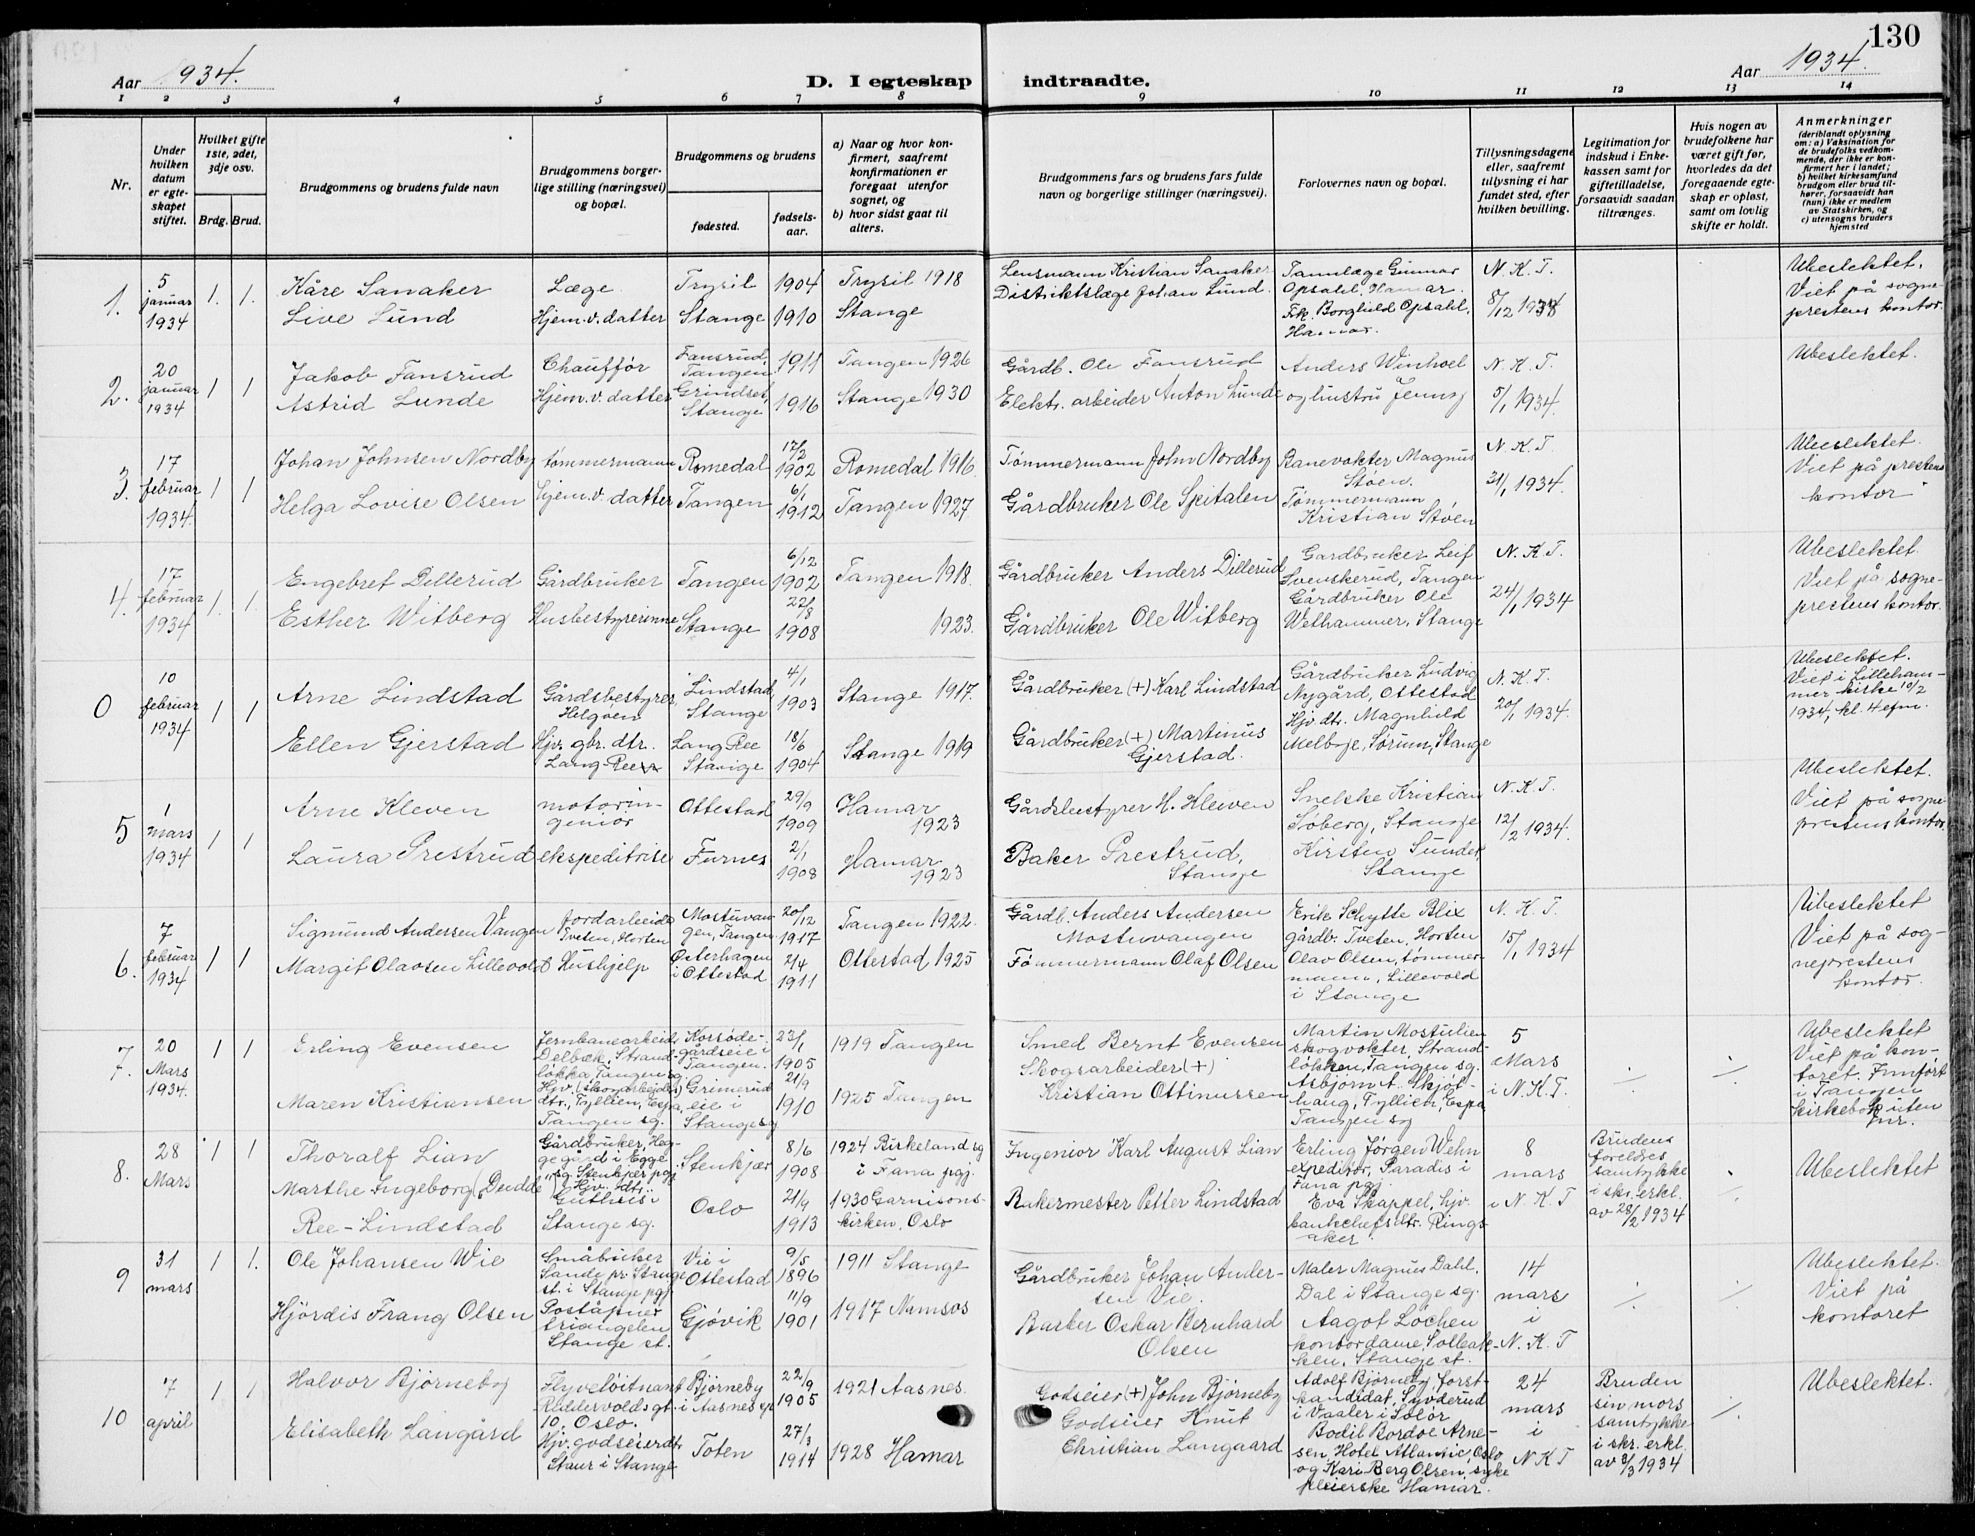 130
Aar 1934.
D. I egteskap indtraadte.
Aar 1934.
1 2 3 4 5 6 7 8 9 10 11 12 13 14
Nr.
Under hvilken datum er egteskapet stiftet.
Hvilket gifte 1ste, 2det, 3dje osv.
Brdg. Brud.
Brudgommens og brudens fulde navn
Brudgommens borgerlige stilling (næringsvei) og bopæl.
Brudgommens og brudens
fødested.
fødselsaar.
a) Naar og hvor konfirmert, saafremt konfirmationen er foregaat utenfor sognet, og
b) hvor sidst gaat til alters.
Brudgommens fars og brudens fars fulde navn og borgerlige stillinger (næringsvei).
Forlovernes navn og bopæl.
Tillysningsdagene eller, saafremt tillysning ei har fundet sted, efter hvilken bevilling.
Legitimation for indskud i Enkekassen samt for giftetilladelse, forsaavidt saadan tiltrænges.
Hvis nogen av brudefolkene har været gift før, hvorledes da det foregaaende egteskap er opløst, samt om lovlig skifte er holdt.
Anmerkninger
(deriblandt oplysning om: a) Vaksination for de brudefolks vedkommende, der ikke er konfirmert her i landet; b) hvilket kirkesamfund brudgom eller brud tilhører, forsaavidt han (hun) ikke er medlem av Statskirken, og c) utensogns bruders hjemsted
1. 5 januar 1934 1. 1.
Kåre Sanaker Læge Trysil 1904 Trysil 1918
Live Lund Hjem.v. datter Stange 1910 Stange
Lensmann Kristian Sanaker
Distriktslæge Johan Lund.
Tannlæge Gunnar Opsahl, Hamar.
Frk. Borghild Opsahl, Hamar.
N.K.T. 8/12 1934
Ubeslektet. Viet på sogneprestens kontor.
2. 20 januar 1934 1 1
Jakob Fansrud Chauffør Fansrud, Tangen 1911 Tangen 1926
Astrid Lunde Hjem.v. datter Grindset, Stange 1916 Stange 1930
Gårdb. Ole Fansrud
Elektr. arbeider Anton Lunde
Anders Winhoel og hustru Jenny
N.K.T. 5/1 1934.
Ubeslektet.
3. 17 februar 1934. 1 1
Johan Johnsen Nordby tømmermann Romedal 17/2 1902 Romedal 1916.
Helga Lovise Olsen Hjem.v. datter Tangen 6/1 1912 Tangen 1927
Tømmermann John Nordby
Gårdbruker Ole Spitalen
Banevokter Magnus Støen.
Tømmermann Kristian Støen
N.K.T. 31/1 1934.
Ubeslektet. Viet på prestens kontor
4. 17 februar 1934 1. 1.
Engebret Dillerud Gårdbruker Tangen 6/12 1902 Tangen 1918.
Esther Witberg Husbestyrerinne Stange 22/8 1908 1923.
Gårdbruker Anders Dillerud
Gårdbruker Ole Witberg
Gardbruker Leif Svenskerud, Tangen
Gårdbruker Ole Wethammer, Stange
N.K.T. 24/1 1934
Ubeslektet. Viet på sogneprestens kontor.
0 10 februar 1934 1 1
Arne Lindstad Gårdsbestyrer, Helgøen Lindstad, Stange 4/1 1903 Stange 1917.
Ellen Gjerstad Hjv. gbr. dtr. Lang-Ree Lang Ree Stange 18/6 1904 Stange 1919
Gårdbruker (+) Karl Lindstad
Gårdbruker (+) Martinus Gjerstad.
Gårdbruker Ludvig Nygård, Ottestad
Hjv. dtr. Magnhild Melbye, Sørum, Stange
N.K.T. 20/1 1934.
Ubeslektet. Viet i Lillehammer kirke 10/2 1934, kl. 4 efm.
5 1 mars 1934 1 1
Arne Kleven motoringeniør Ottestad 29/9 1909 Hamar 1923
Laura Prestrud ekspeditrise Furnes 2/1 1908 Hamar 1923
Gårdsbestyrer H. Kleiven
Baker Prestrud, Stange
Snekke Kristian Søberg, Stange
Kirsten Sunde, Stange
N.K.T. 12/2 1934.
Ubeslektet. Viet på sogneprestens kontor.
6. 7 februar 1934 1 1
Sigmund Andersen Vangen Jordarbeider Tveten, Horten Mostuvangen, Tangen 20/12 1917 Tangen 1922.
Margit Olavsen Lillevold Hushjelp Østerhagen i Ottestad 2/4 1911 Ottestad 1925
Gårdb. Anders Andersen Mostuvangen
Tømmermann Olaf Olsen
Erik Schytte Blix gårdb. Tveten, Horten
Olav Olsen, tømmermann, Lillevold i Stange
N.K.T. 15/1 1934
Ubeslektet Viet på sogneprestens kontor.
7. 20 Mars 1934. 1 1
Erling Evensen Jernbanearbeider Delbæk, Strandløkka, Tangen sg. Korsødegårdseie i Tangen. 23/1 1905 1919 Tangen
Maren Kristiansen Hjv. (skogarbeider) dtr., Tyllien, Espa, Tangen sg. Grimerud eie i Stange sg 21/9 1910 1925 Tangen
Smed Bernt Evensen
Skogsarbeider (+) Kristian Ottinussen
Martin Mostulien skogvokter, Strandløkken, Tangen sg.
Asbjørn A. Skjøthaug, Tyllien, Espa Tangen sg
5 Mars i N.K.T.
Ubeslektet Viet på kontoret. Innført i Tangen kirkebok uten nr.
8. 28 Mars 1 1
Thoralf Lian Gårdbruker, Heggegård i Egge sg. Stenkjær pgj. Stenkjær 8/6 1908 1924 Birkeland sg i Fana pgj.
Marthe Ingeborg (Dudde) Ree-Lindstad Hjv. dtr. Guthus i Stange sg. Oslo 21/9 1913 1930 Garnisonskirken, Oslo
Ingeniør Karl August Lian
Bakermester Petter Lindstad
Erling Jørgen Wehn expeditør, Paradis i Fana pgj.
Eva Skappel, hjv. bankchefs dtr. Ringsaker.
8 mars i N.K.T
Brudens foreldres samtykke i skr. erkl. av 28/2 1934
Ubeslektet
9 31 mars 1 1.
Ole Johansen Wie Småbruker Sande pr. Stange st. i Stange pgj. Vie i Ottestad 9/5 1896 1911 Stange
Hjördis Frang Olsen Poståpner triangelen Stange st. Gjøvik 11/9 1901 1917 Namsos
Gårdbruker Johan Andersen Vie.
Barber Oskar Bernhard Olsen
Maler Magnus Dahl, Dal i Stange sg.
Aagot Lochen kontordame, Solbakken, Stange st.
14 mars i N.K.T
Ubeslektet. Viet på kontoret
10 7 april 1 1
Halvor Bjørneby Flyveløitnant Riddervolds gt. 10, Oslo. Bjørneby i Aasnes sg 22/9 1905 1921 Aasnes.
Elisabeth Langård Hjv. godseierdtr. Staur i Stange Toten 27/3 1914 1928 Hamar
Godseier (+) John Bjørneby
Godseier Knut Christian Langaard
Adolf Bjørneby, forstkandidat, Syverud i Vaaler i Solør
Bodil Bordoe Arnesen, Hotel Atlantic, Oslo og Kari Berg Olsen, sykepleierske Hamar.
24 mars i N.K.T
Bruden sin mors samtykke i skr. erkl. av 8/3 1934
Ubeslektet.